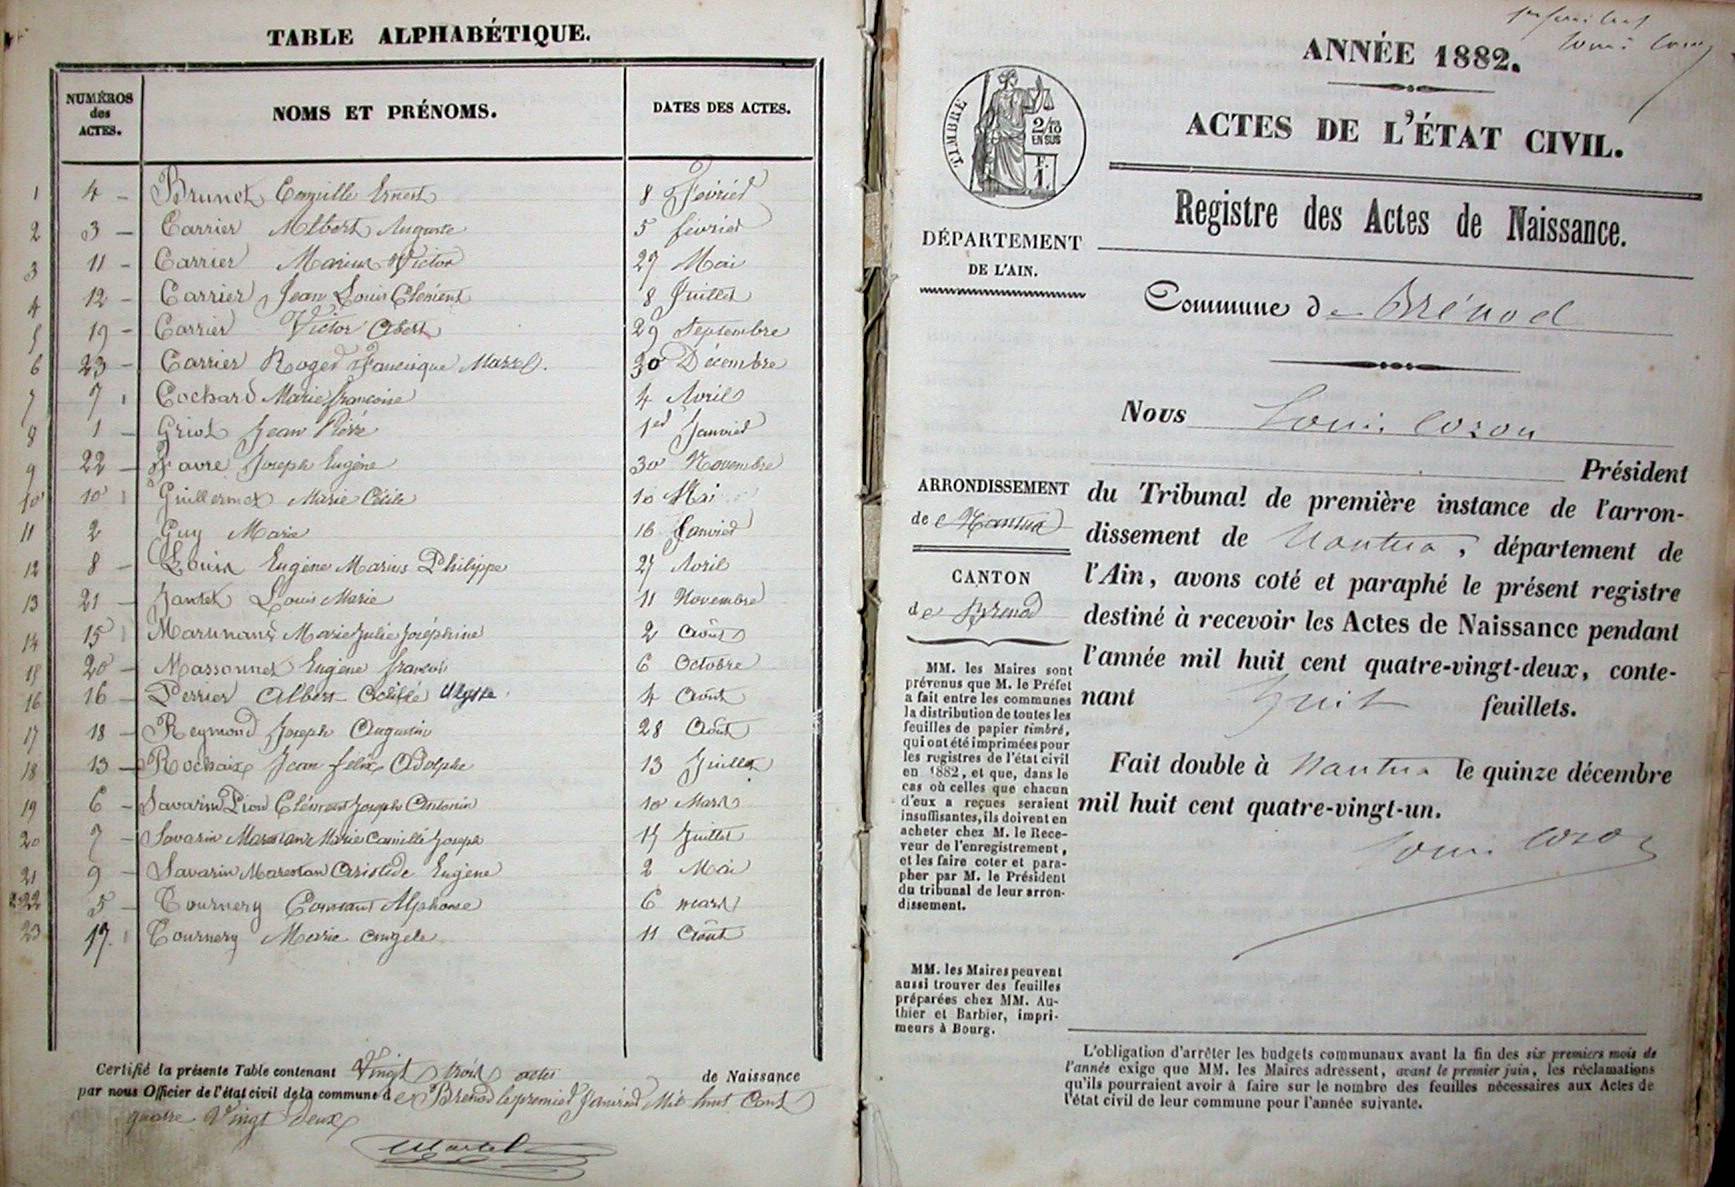 TABLE ALPHABÉTIQUE.
NUMÉROS des ACTES. NOMS ET PRÉNOMS. DATES DES ACTES.
1 4 - Brunet Camille Ernest 8 Février
2 3 - Carrier Albert Auguste 5 février
3 11 - Carrier Marius Victor 27 Mai
4 12 - Carrier Jean Louis Clément 8 Juillet
5 19 - Carrier Victor Albert 29 Septembre
6 23 - Carrier Roger Francisque Marcel. 30 Décembre
7 7 Cochard Marie françoise 4 Avril
8 1 - Griot Jean 1er Janvier
9 22 - Favre Joseph Eugène 30 Novembre
10 10 Guillermet Marie Cécile 10 Mai
11 2 Guy Marie 16 Janvier
12 8 - Eugène Marius Philippe 27 Avril
13 21 - Jantet Louis Marie 11 Novembre
14 15 Marie Julie Joséphine 2 Août
15 20 - Massonnet Eugène françois 6 Octobre
16 16 - Perrier Albert Ulysse 4 Août
17 18 - Reymond Joseph Augustin 28 Août
18 13 - Rochaix Jean félix Adolphe 13 Juillet
19 6 - Savarin Pion Clément Joseph Antonin 10 Mars
20 - Savarin Marestan Marie Camille Joseph Juillet
21 9 - Savarin Marestan Aristide Eugène 2 Mai
22 5 - Tournery Constant Alphonse 6 mars
23 17. Tournery Marie Angèle 11 Août
Certifié la présente Table contenant Vingt trois actes de Naissance
par nous Officier de l'état civil de la commune de Brénod le premier Janvier Mil huit Cent
quatre Vingt deux
Louis Cozon
ANNÉE 1882.
ACTES DE L'ÉTAT CIVIL.
TIMBRE
2/10 EN SUS
F. 1.
Registre des Actes de Naissance.
DÉPARTEMENT
DE L'AIN.
Commune de Brénod
Nous Louis Cozon
Président
du Tribunal de première instance de l'arron-
dissement de Nantua, département de
l'Ain, avons coté et paraphé le présent registre
destiné à recevoir les Actes de Naissance pendant
l'année mil huit cent quatre-vingt-deux, conte-
nant huit feuillets.
Fait double à Nantua le quinze décembre
mil huit cent quatre-vingt-un.
Louis Cozon
ARRONDISSEMENT
de Nantua
CANTON
de Brénod
MM. les Maires sont
prévenus que M. le Préfet
a fait entre les communes
la distribution de toutes les
feuilles de papier timbré,
qui ont été imprimées pour
les registres de l'état civil
en 1882, et que, dans le
cas où celles que chacun
d'eux a reçues seraient
insuffisantes, ils doivent en
acheter chez M. le Rece-
veur de l'enregistrement,
et les faire coter et para-
pher par M. le Président
du tribunal de leur arron-
dissement.
MM. les Maires peuvent
aussi trouver des feuilles
préparées chez MM. Au-
thier et Barbier, impri-
meurs à Bourg.
L'obligation d'arrêter les budgets communaux avant la fin des six premiers mois de
l'année exige que MM. les Maires adressent, avant le premier juin, les réclamations
qu'ils pourraient avoir à faire sur le nombre des feuilles nécessaires aux Actes de
l'état civil de leur commune pour l'année suivante.